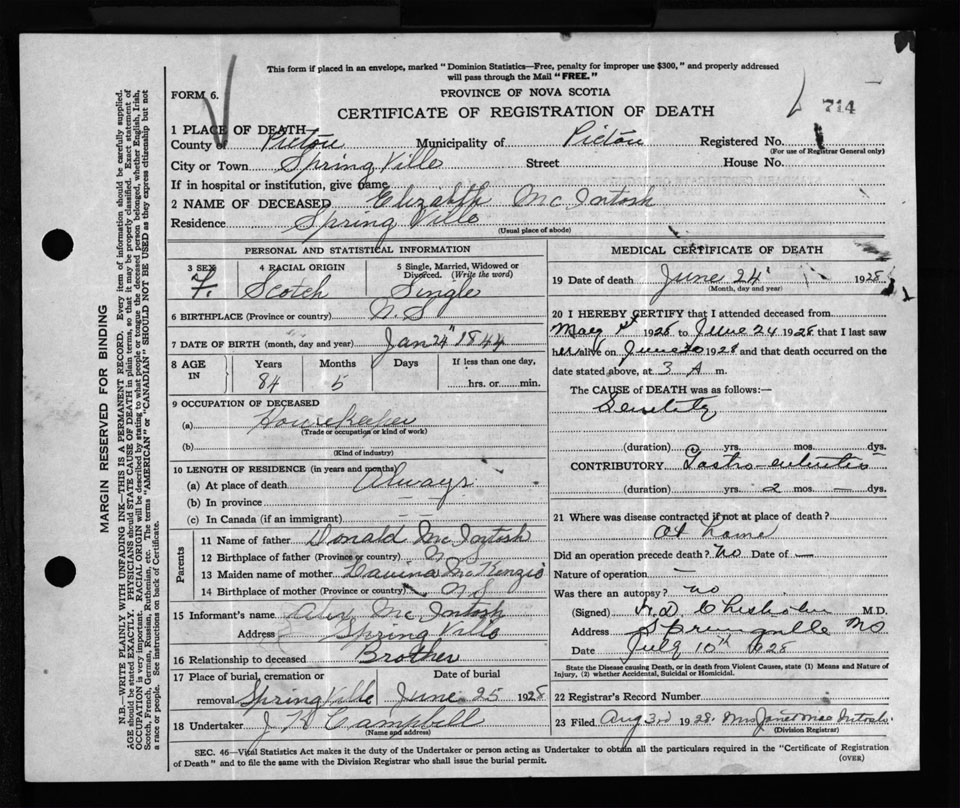 This form if placed in an envelope, marked "Dominion Statistics—Free, penalty for improper use $300," and properly addressed
will pass through the Mail "FREE."
FORM 6.
PROVINCE OF NOVA SCOTIA
CERTIFICATE OF REGISTRATION OF DEATH
714
1 PLACE OF DEATH—
County of Pictou Municipality of Pictou Registered No.
(For use of Registrar General only)
City or Town Spring Ville Street House No.
If in hospital or institution, give name
2 NAME OF DECEASED Elizabeth Mc Intosh
Residence Spring Ville
(Usual place of abode)
PERSONAL AND STATISTICAL INFORMATION
3 SEX 4 RACIAL ORIGIN 5 Single, Married, Widowed or Divorced. (Write the word)
F. Scotch Single
6 BIRTHPLACE (Province or country) N.S
7 DATE OF BIRTH (month, day and year) Jan 24" 1844
8 AGE IN Years Months Days If less than one day,
84 5 hrs. or min.
9 OCCUPATION OF DECEASED
(a) Housekeeper
(Trade or occupation or kind of work)
(b)
(Kind of industry)
10 LENGTH OF RESIDENCE (in years and months)
(a) At place of death Always
(b) In province
(c) In Canada (if an immigrant)
Parents
11 Name of father Donald Mc Intosh
12 Birthplace of father (Province or country) N S
13 Maiden name of mother McKenzie
14 Birthplace of mother (Province or country) N S
15 Informant's name Mc Intosh
Address Spring Ville
16 Relationship to deceased Brother
17 Place of burial, cremation or removal Date of burial
Spring Ville June 25 1928
18 Undertaker Campbell
(Name and address)
MEDICAL CERTIFICATE OF DEATH
19 Date of death June 24" 1928
(Month, day and year)
20 I HEREBY CERTIFY that I attended deceased from
1928 to June 24 1928 that I last saw
her alive on June 20 1928 and that death occurred on the
date stated above, at 3 A m.
The CAUSE of DEATH was as follows:—
Senility
(duration) yrs. mos. dys.
CONTRIBUTORY Gastro-enteritis
(duration) yrs. 2 mos. — dys.
21 Where was disease contracted if not at place of death?
At home
Did an operation precede death? No Date of —
Nature of operation —
Was there an autopsy? no
(Signed) Chisholm M.D.
Address Springville NS
Date July 10th 1928
State the Disease causing Death, or in death from Violent Causes, state (1) Means and Nature of
Injury, (2) whether Accidental, Suicidal or Homicidal.
22 Registrar's Record Number
23 Filed Aug 3rd 1928. Mrs Janet Mac Intosh
(Division Registrar)
SEC. 46—Vital Statistics Act makes it the duty of the Undertaker or person acting as Undertaker to obtain all the particulars required in the "Certificate of Registration
of Death" and to file the same with the Division Registrar who shall issue the burial permit.
(OVER)
MARGIN RESERVED FOR BINDING
N.B.—WRITE PLAINLY WITH UNFADING INK—THIS IS A PERMANENT RECORD. Every item of information should be carefully supplied.
AGE should be stated EXACTLY. PHYSICIANS should STATE CAUSE OF DEATH in plain terms, so that it may be properly classified. Exact statement of
OCCUPATION is very important. RACIAL ORIGIN will be described by stating to what people or tongue the deceased person belonged, whether English, Irish,
Scotch, French, German, Russian, Ruthenian, etc. The terms "AMERICAN" or "CANADIAN" SHOULD NOT BE USED as they express citizenship but not
a race or people. See instructions on back of Certificate.